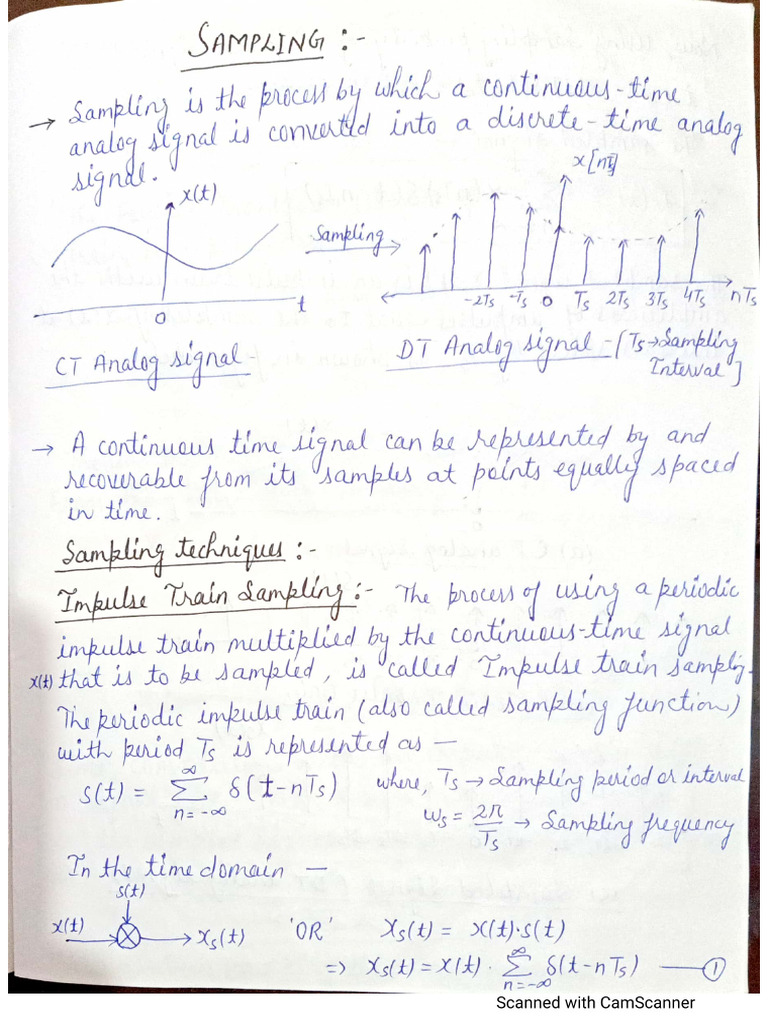 SAMPLING :-
→ Sampling is the process by which a continuous-time
analog signal is converted into a discrete-time analog
signal.
x(t)
x[nTs]
Sampling
0 t
-2Ts -Ts 0 Ts 2Ts 3Ts 4Ts nTs
CT Analog signal
DT Analog signal - [Ts→Sampling
Interval]
→ A continuous time signal can be represented by and
recoverable from its samples at points equally spaced
in time.
Sampling techniques :-
Impulse Train Sampling :- The process of using a periodic
impulse train multiplied by the continuous-time signal
x(t) that is to be sampled, is called Impulse train sampling.
The periodic impulse train (also called sampling function)
with period Ts is represented as —
s(t) = ∞ Σ n=-∞ δ(t-nTs) where, Ts → Sampling period or interval
ωs = 2π/Ts → Sampling frequency
In the time domain —
s(t)
x(t) ⊗ → xs(t) 'OR' xs(t) = x(t)·s(t)
=> xs(t) = x(t) · ∞ Σ n=-∞ δ(t-nTs) — ①
Scanned with CamScanner